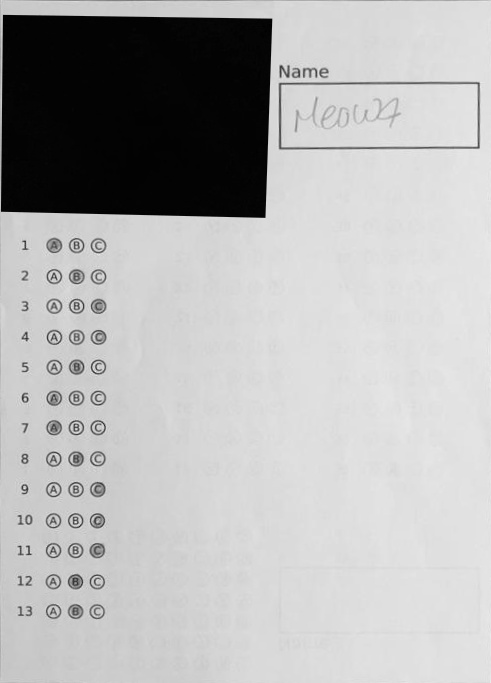 Name
Meow
1 A B C
2 A B C
3 A B C
4 A B C
5 A B C
6 A B C
7 A B C
8 A B C
9 A B C
10 A B C
11 A B C
12 A B C
13 A B C